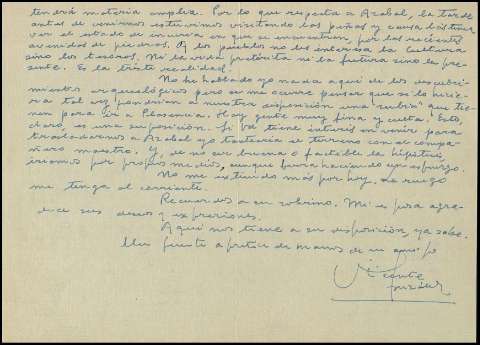 tendrá materia amplia. Por lo que respecta a Azabal, la tarde
antes de venirnos estuvimos visitando las peñas y causa lástima
ver el estado de incuria en que se encuentran, por las recientes
avenidas de piedras. A los pueblos no les interesa la cultura
sino los tesoros. Ni la vida pretérita ni la futura sino la pre-
sente. Es la triste realidad.
No he hablado yo nada aquí de los descubri-
mientos arqueológicos pero se me ocurre pensar que si lo hicie-
ra tal vez pondrían a nuestra disposición una "rubia" que tie-
nen para ir a Plasencia. Hay gente muy fina y culta. Esto,
claro, es una suposición. Si Vd tiene interés en venir para
trasladarnos a Azabal yo tantearía el terreno con el compa-
ñero maestro. Y, de no ser buena o factible la hipótesis,
iríamos por propios medios, aunque fuera haciendo un esfuerzo.
No me extiendo más por hoy. Le ruego
me tenga al corriente.
Recuerdos a su sobrino. Mi esposa agra-
dece sus deseos y expresiones.
Aquí nos tiene a su disposición, ya sabe.
Un fuerte apretón de manos de su amigo
Vicente